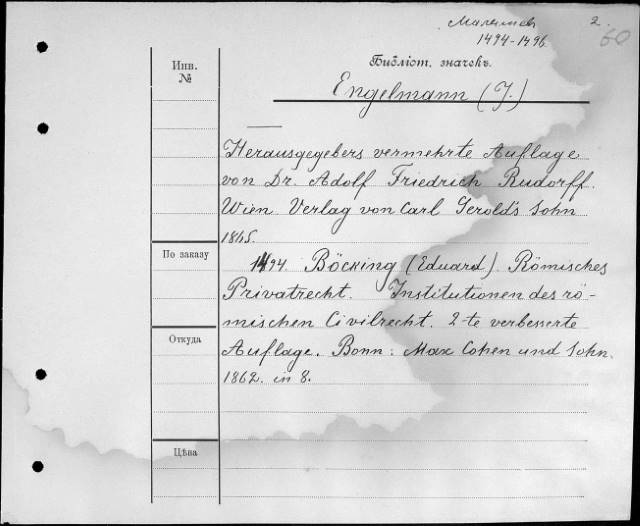 Малышев 2.
1494-1496 60
Инв.
№
Библіот. значекъ.
Engelmann (J.)
Herausgegebers vermehrte Auflage
von Dr. Adolf Friedrich Rudorff.
Wien. Verlag von Carl Gerold's Sohn
1865.
По заказу
1494. Böcking (Eduard). Römisches
Privatrecht. Institutionen des rö-
mischen Civilrecht. 2-te verbesserte
Откуда
Auflage. Bonn: Max Cohen und Sohn.
1862. in 8.
Цѣна